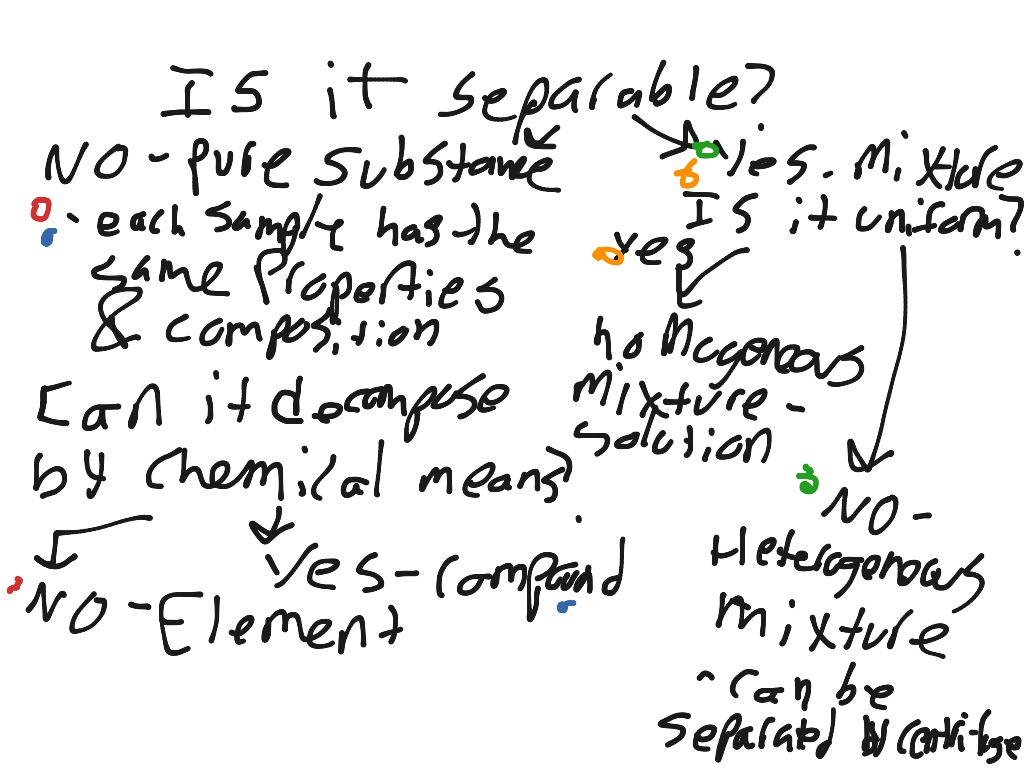 Is it separable?
NO - pure substance
- each sample has the
same properties
& composition
Can it decompose
by chemical means?
NO - Element
Yes - compound
Yes. Mixture
Is it uniform?
Yes
homogenous
mixture -
solution
NO -
Heterogenous
mixture
- can be
separated centrifuge